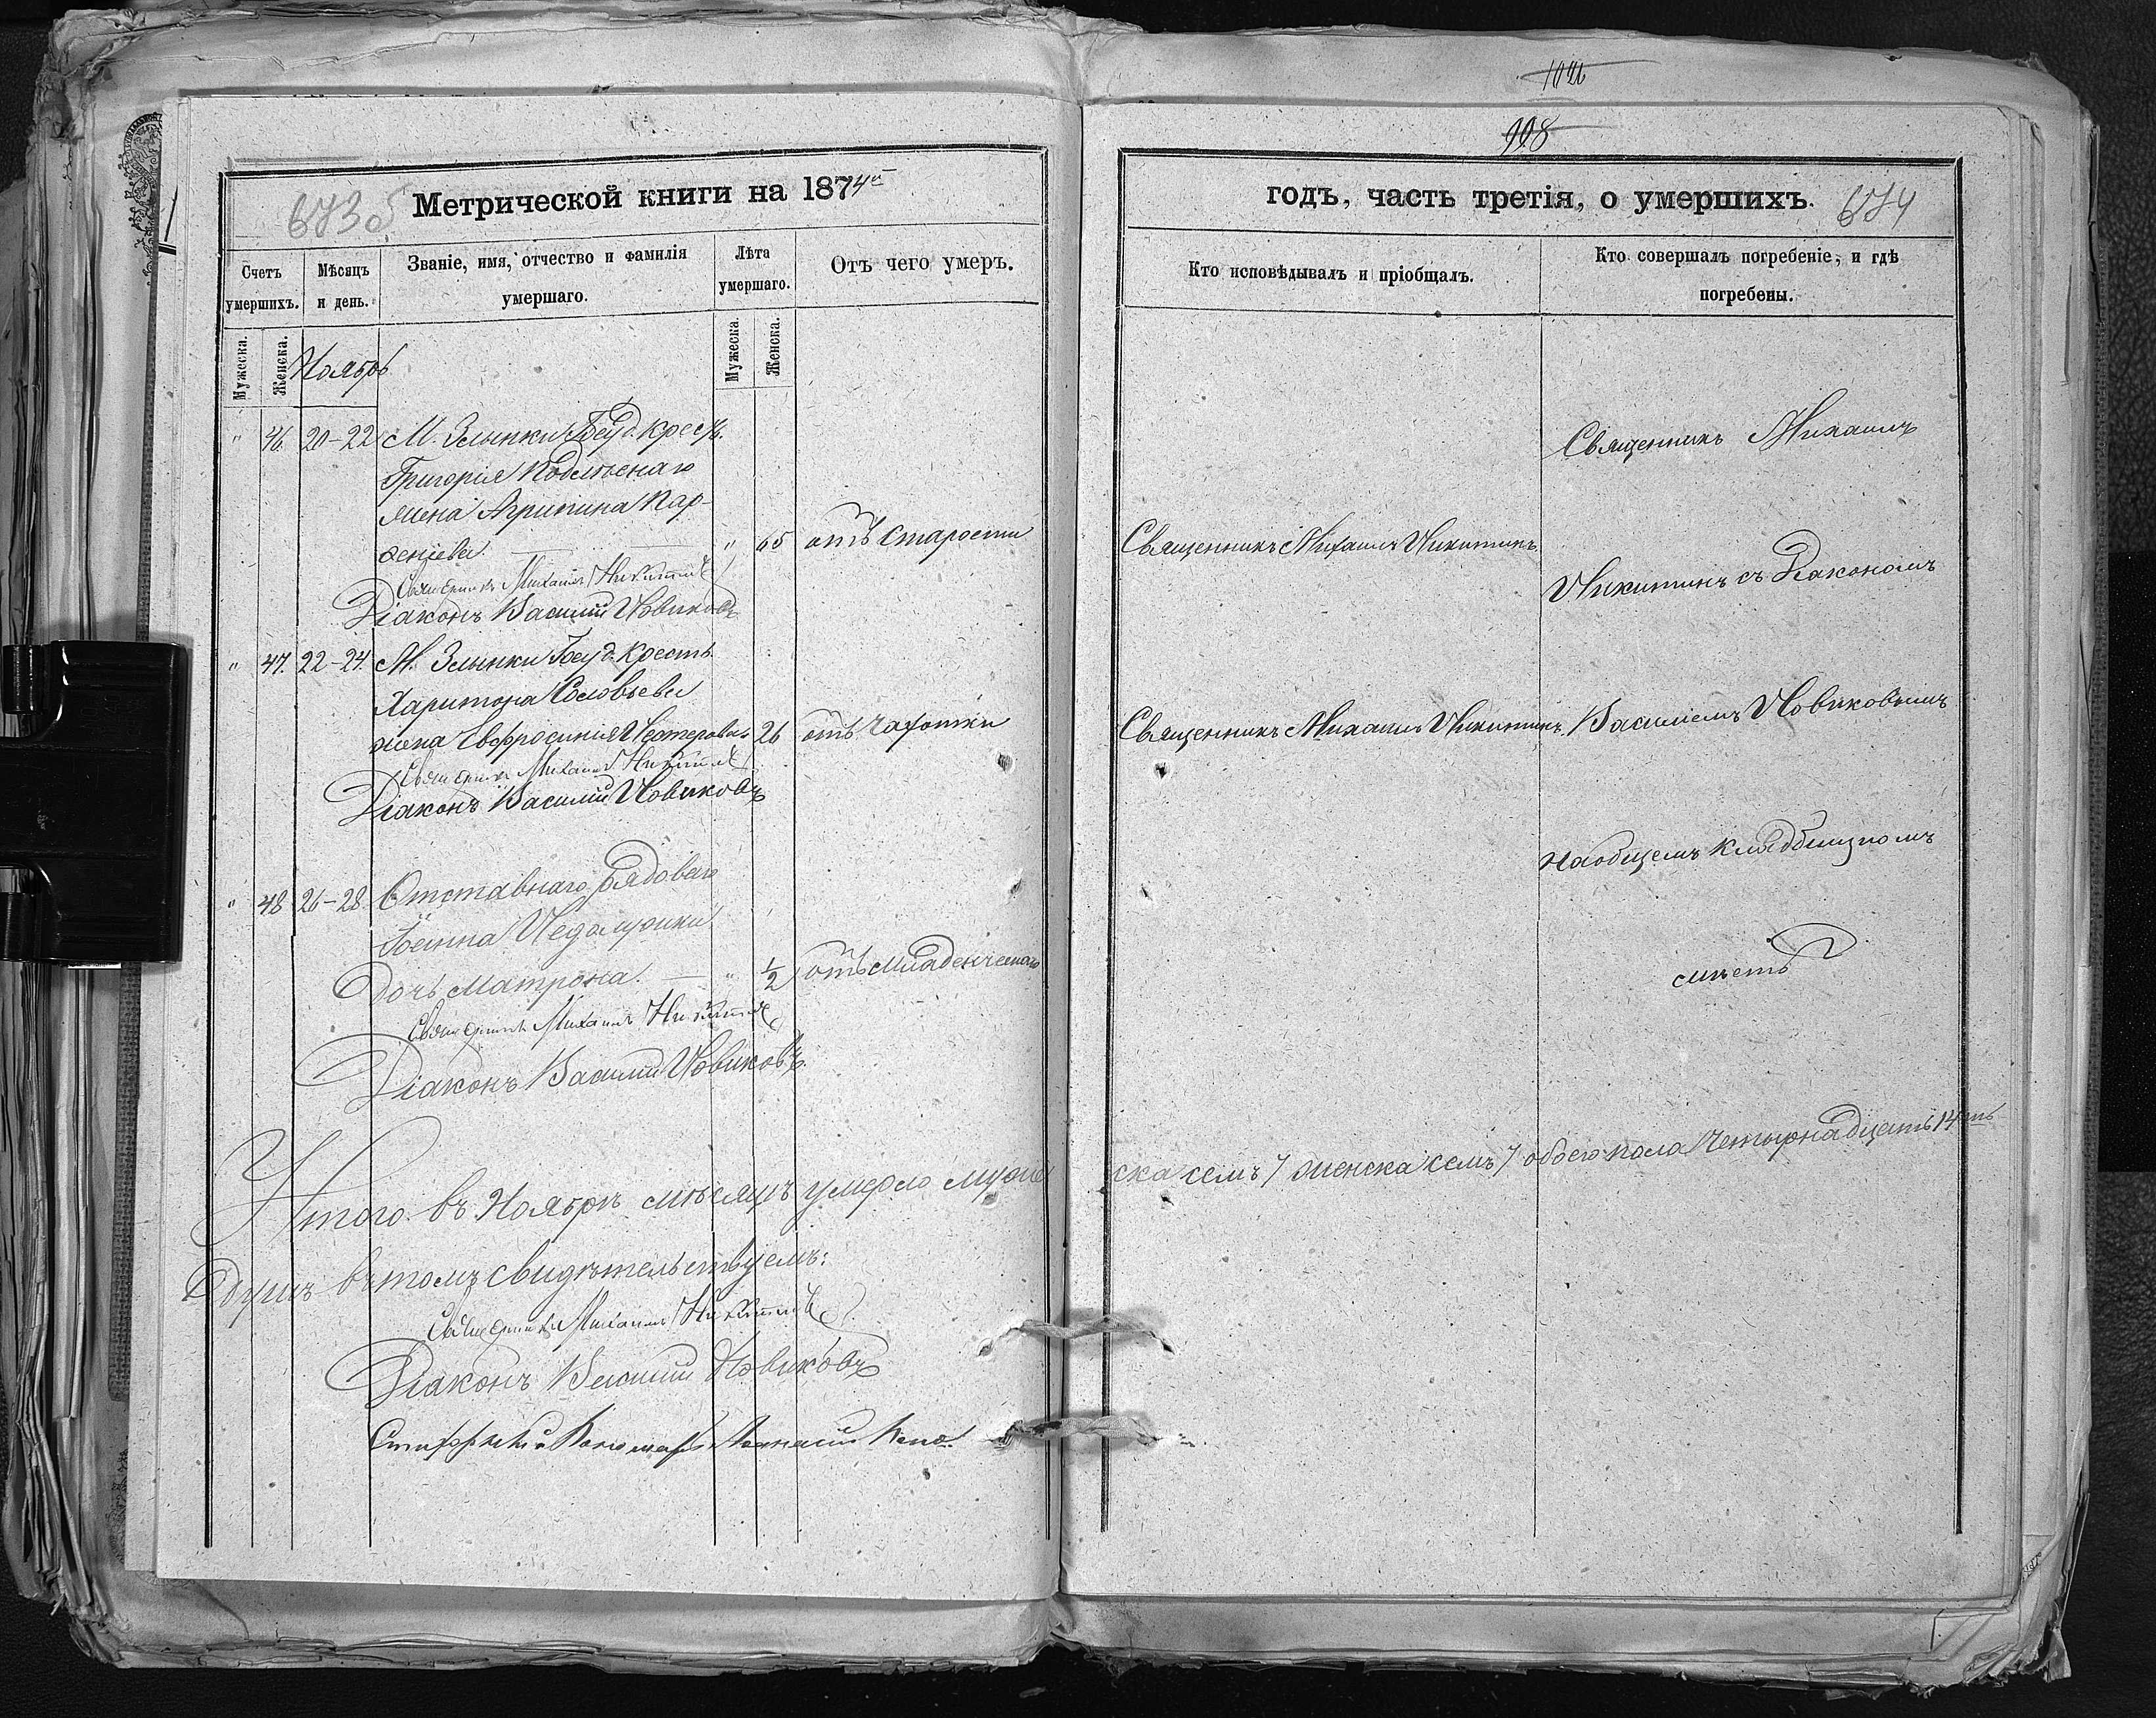 Метрической книги на 1874й
673 об
Счетъ умершихъ.
Мѣсяцъ и день.
Званіе, имя, отчество и фамилія умершаго.
Лѣта умершаго.
Отъ чего умеръ.
Мужеска.
Женска.
Ноябрь
Мужеска.
Женска.
" 46. 20-22 М. Злынки Крест.
Григорія
жена Агрипина Пар-
ѳеніева. " 65 отъ старости
Священникъ Михаилъ Никитинъ
Діаконъ Василій Новиковъ
" 47. 22-24. М. Злынки Крестъ.
Харитона Соловьева
жена Евфросинія Нестерова 26 отъ чахотки
Священникъ Михаилъ Никитинъ
Діаконъ Василій Новиковъ
" 48 26-28. Отставнаго рядоваго
Іоанна
дочь Матрона. " 1/2 отъ младенческаго
Священникъ Михаилъ Никитинъ
Діаконъ Василій Новиковъ.
Итого въ Ноябрѣ мѣсяцѣ умерло муже
душъ въ томъ свидѣтельствуемъ:
Священникъ Михаилъ Никитинъ
Діаконъ Василій Новиковъ
1026
998
годъ, часть третія, о умершихъ.
674
Кто исповѣдывалъ и пріобщалъ.
Кто совершалъ погребеніе, и гдѣ погребены.
Священникъ Михаилъ
Священникъ Михаилъ Никитинъ.
Никитинъ съ Діакономъ
Священникъ Михаилъ Никитинъ. Василіемъ Новиковымъ
На общемъ кладбищномъ
мѣстѣ
ска семъ 7 женска семъ 7 обоего пола четырнадцать 14ть